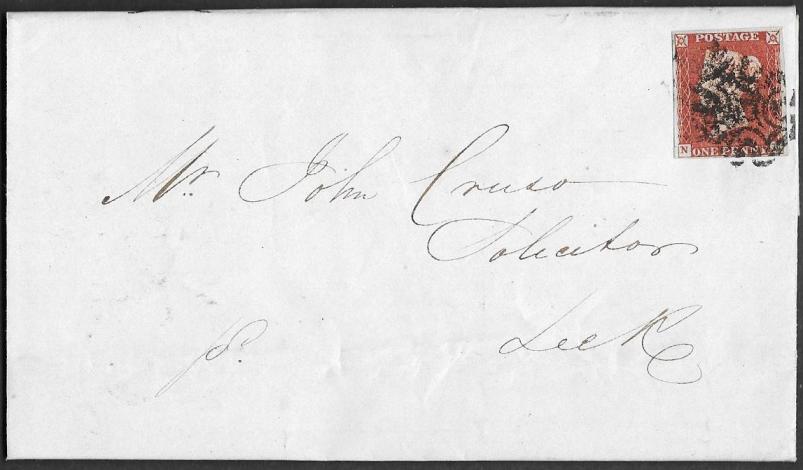 POSTAGE
N
ONE PENNY
Mr. John Cruso
Solicitor
Leek